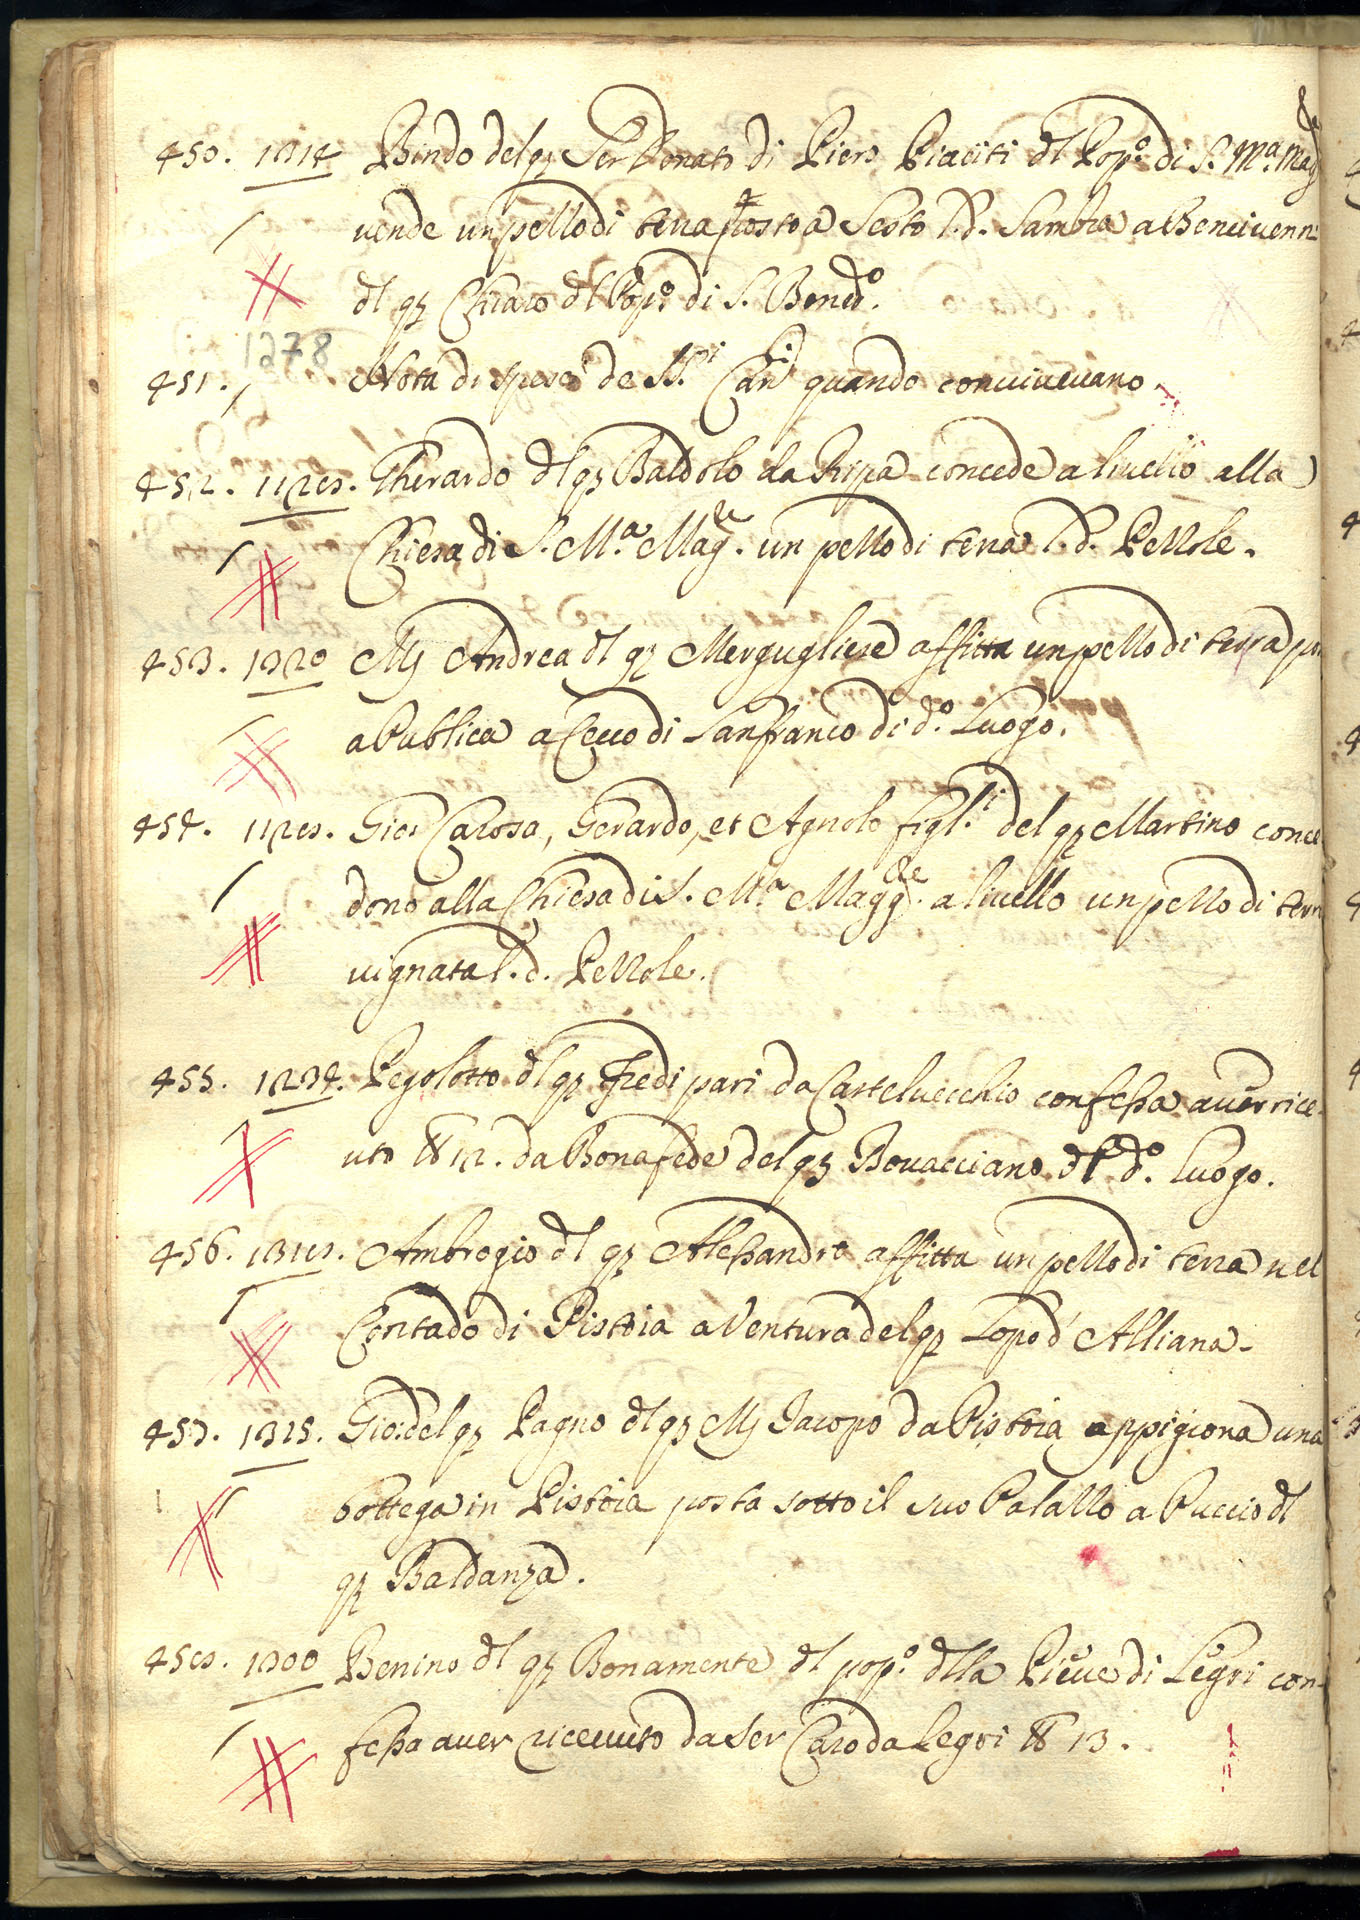 450. 1314 Bindo del qz Ser Donato di Piero Piaciti dl Pop.º di S. M.ª Mag.re
vende un pezzo di terra posto a Sesto l. d. Sambra a Benivenni
dl qz Chiaro dl Pop.º di S. Bened.º
1278
451. Nota di spese de SS.ri Can.i quando convivevano.
452. 1128. Gherardo dl qz Baldolo da Ripa concede a livello alla
Chiesa di S. M.ª Mag.re un pezzo di terra l. d. Pezzole.
453. 1320 Mj Andrea dl qz Mergugliese affitta un pezzo di terra
a Publica a Cecco di Lanfranco di d.º Luogo.
454. 1128. Gio: Carosa, Gerardo, et Agnolo figl.i del qz Martino conce
dono alla Chiesa di S. M.ª Magg.re a livello un pezzo di terra
vignata l. d. Pezzole.
455. 1234. Pegolotto dl qz Fredi pari da Castelvecchio confessa aver rice-
uto lb 12. da Bonafede del qz Bovacciano dl d.º luogo.
456. 1311. Ambrogio dl qz Alessandro affitta un pezzo di terra nel
Contado di Pistoia a Ventura del qz Lopo d'Alliana.
457. 1315. Gio: del qz Pagno dl qz Mj Jacopo da Pistoia appigiona una
bottega in Pistoia posta sotto il suo Palazzo a Puccio dl
qz Baldanza.
458. 1300 Benino dl qz Bonamente dl pop.º dlla Pieve di Legri con-
fessa aver ricevuto da Ser Caro da Legri lb 13.